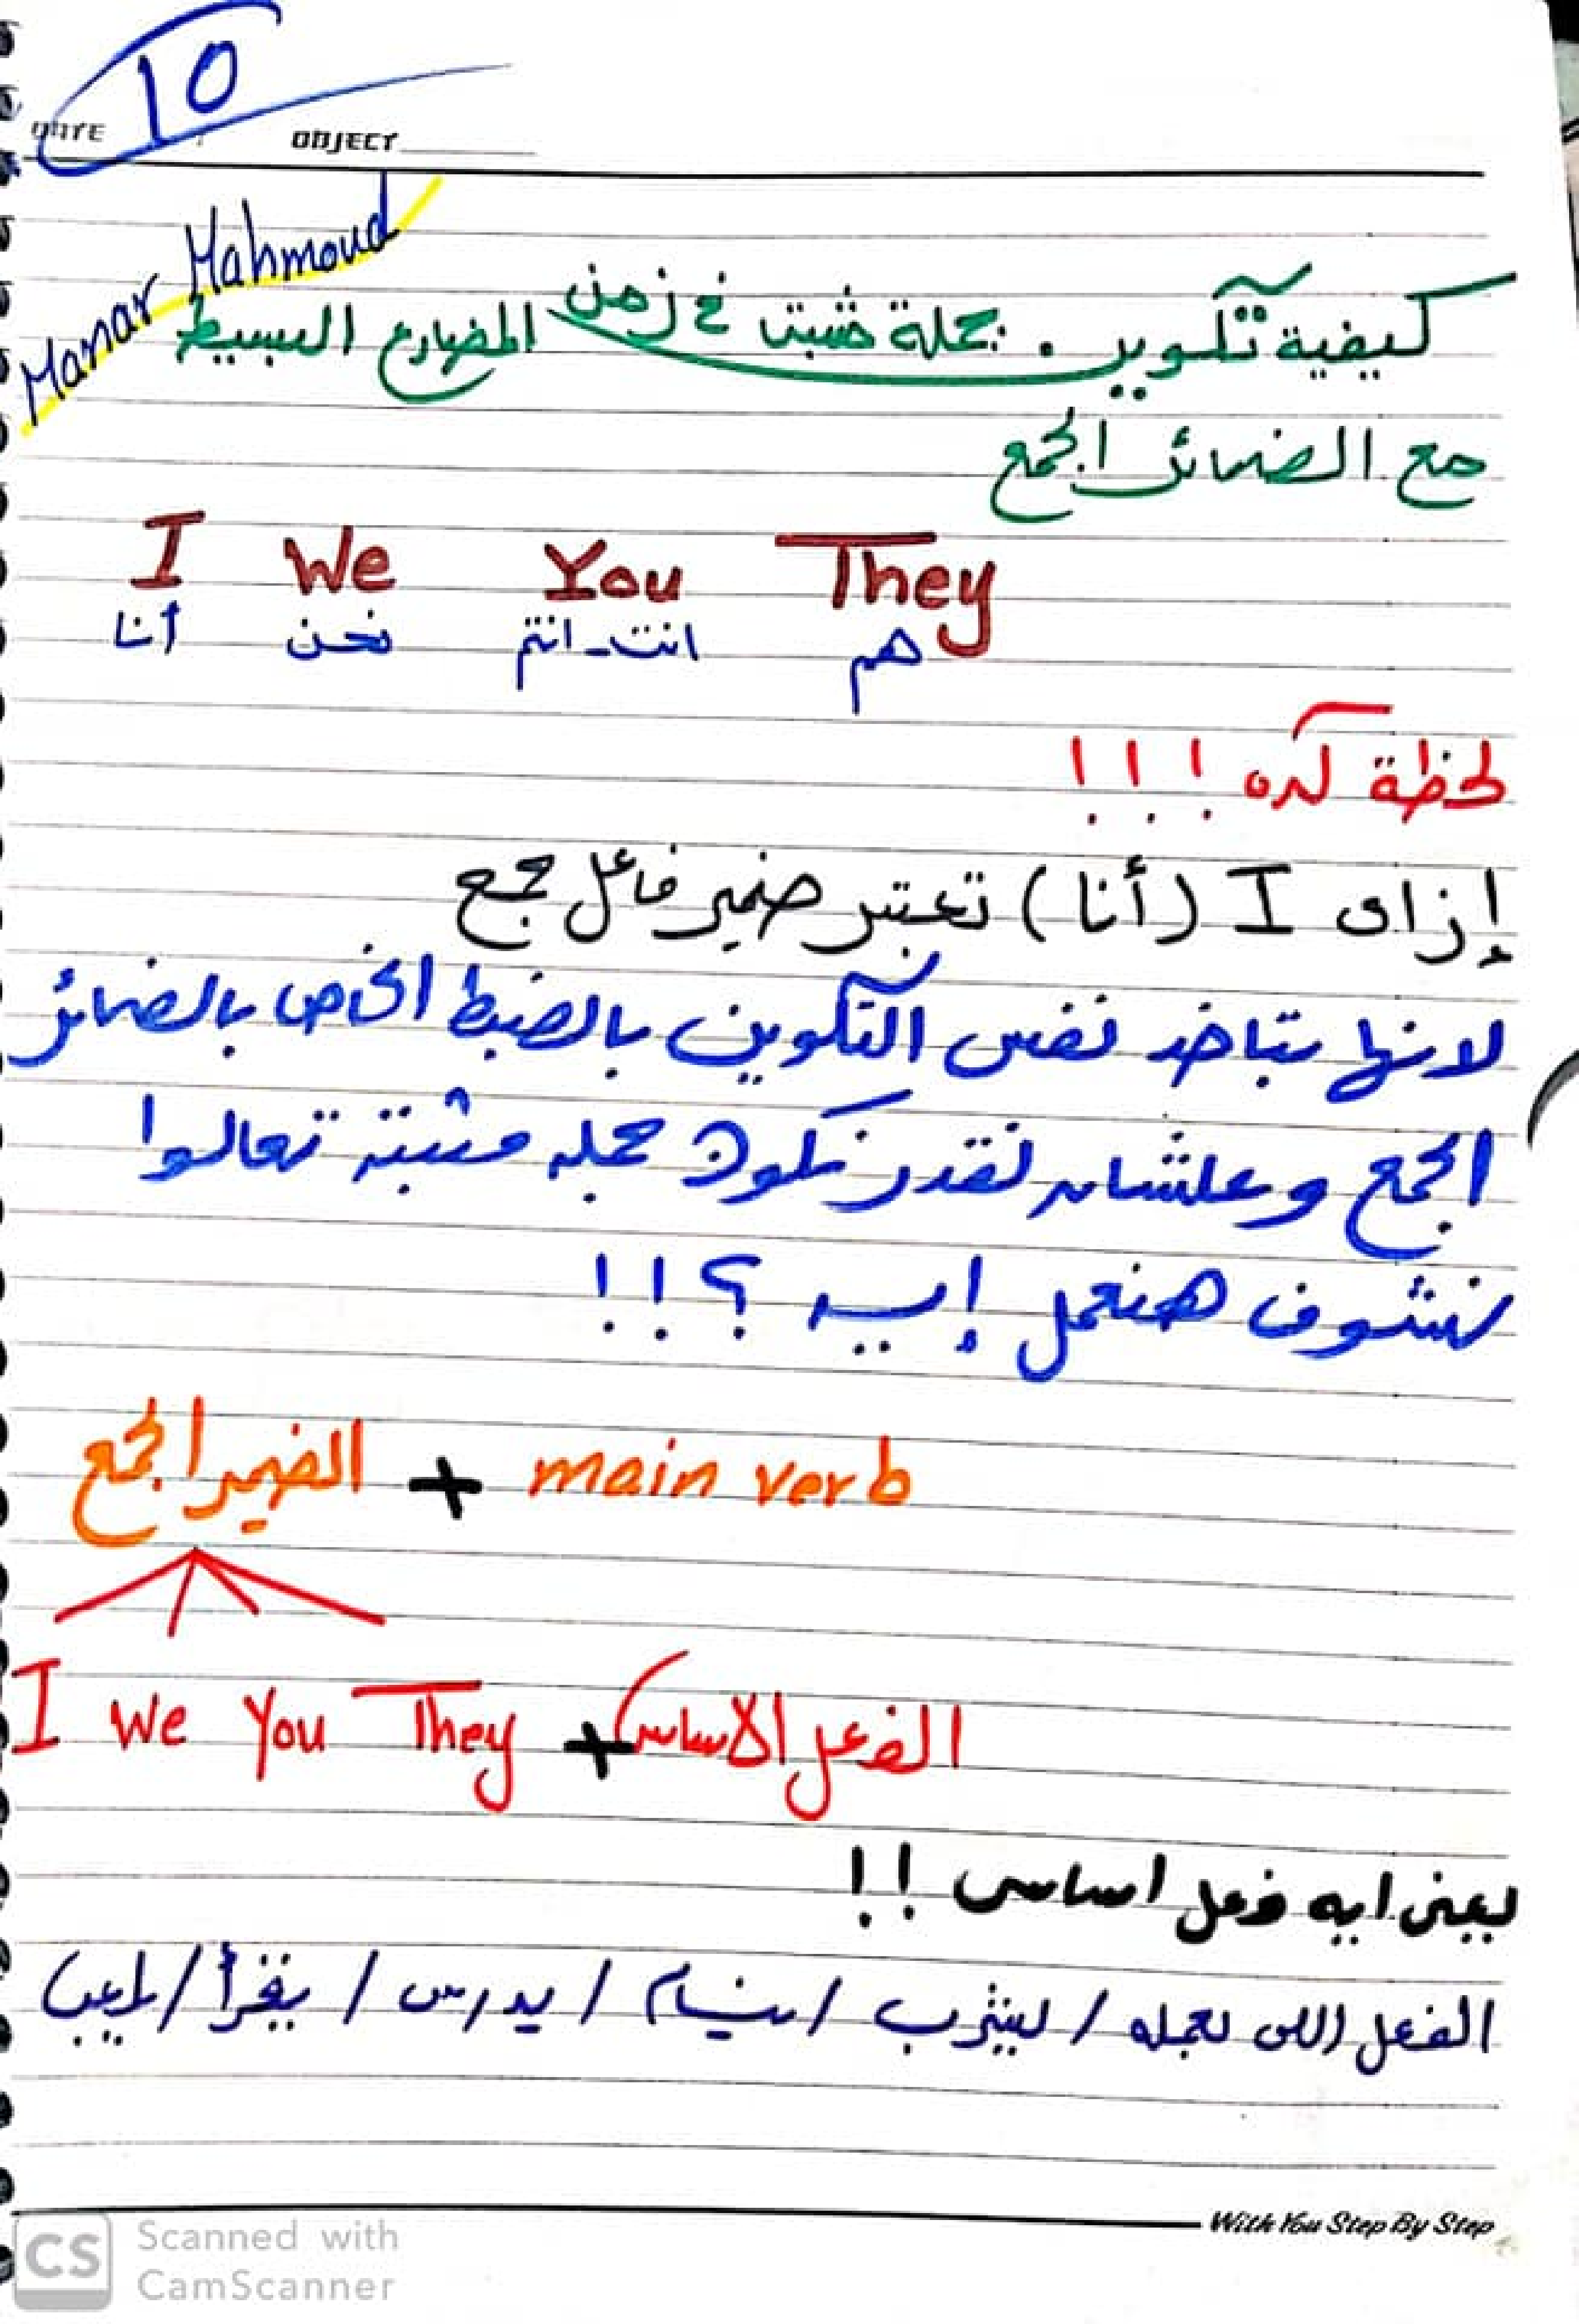 10
DATE OBJECT
Manar Mahmoud
كيفية تكوين جملة مثبتة في زمن المضارع البسيط
مع الضمائر الجمع
I We You They
أنا نحن انت - انتم هم
لحظة كده !!!
إزاى I (أنا) تعتبر ضمير فاعل جمع
لانها بتاخد نفس التكوين بالضبط الخاص بالضمائر
الجمع وعلشان نقدر نكون جمله مثبتة تعالوا
نشوف هنعمل إيه ؟!!
الضمير الجمع + main verb
I We You They + الفعل الاساسى
يعنى ايه فعل اساسى !!
الفعل اللى بعمله / يشرب / ينام / يدرس / يقرأ / يلعب
With You Step By Step
CS Scanned with
CamScanner